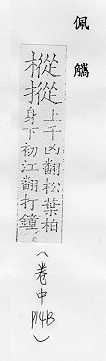 佩觿
樅摐
上千凶翻松葉柏
身下初江翻打鐘。
(卷中
P14B
)